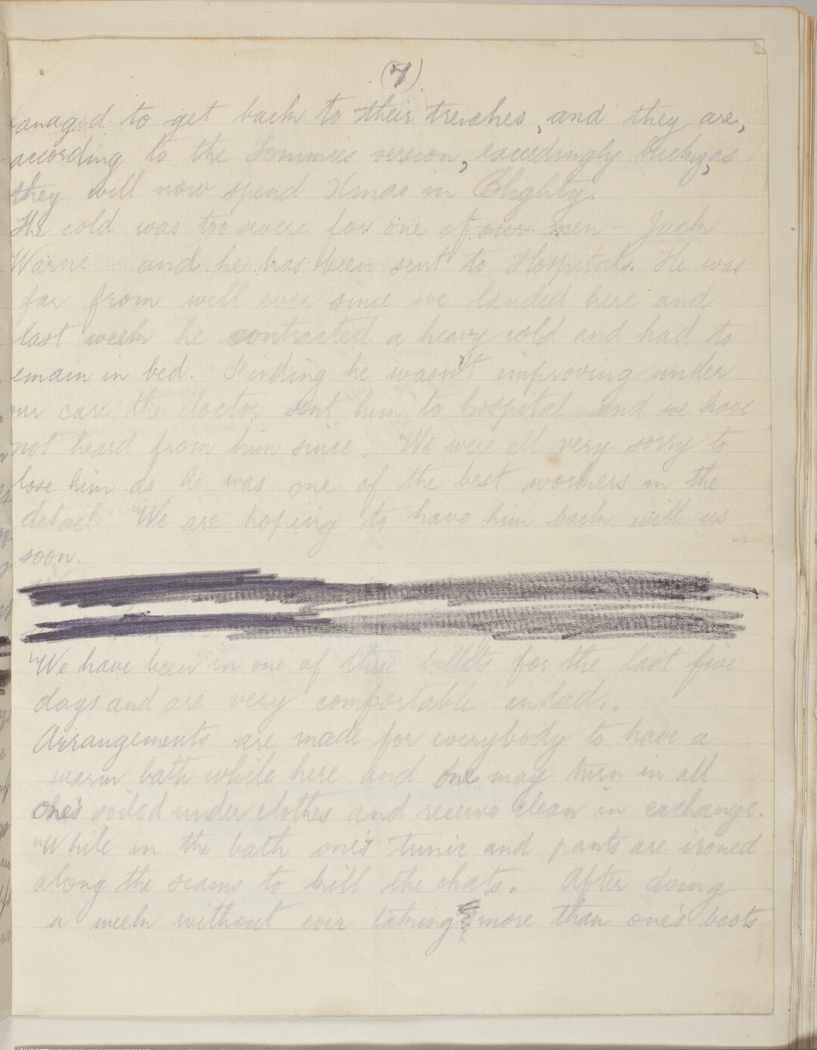 (7)
anaged to get back to their trenches, and they are,
according to the Tommies version, exceedingly lucky, as
they will now spend Xmas in Blighty.
The cold was too severe for one of our men - Jack
Warne - and he has been sent to Hospital. He was
far from well ever since we landed here and
last week he contracted a heavy cold and had to
emain in bed. Finding he wasn't improving under
ur care the doctor sent him to hospital and we have
not heard from him since. We were all very sorry to
lose him as he was one of the best workers in the
detail. We are hoping to have him back with us
soon.
We have been in one of these billets for the last five
days and are very comfortable indeed.
Arrangements are made for everybody to have a
warm bath while here and one may turn in all
one's soiled under clothes and receive clean in exchange.
While in the bath one's tunic and pants are ironed
along the seams to kill the chats. After doing
a week without ever taking more than one's boots